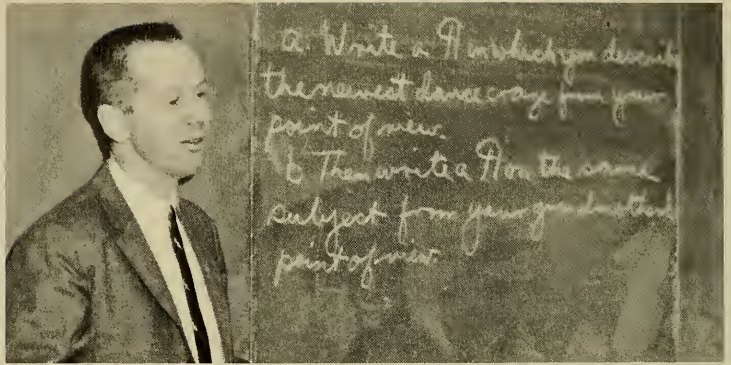 a. Write a ¶ in which you describe
the newest dance craze from your
point of view.
b Then write a ¶ on the same
subject from your grandmother's
point of view.